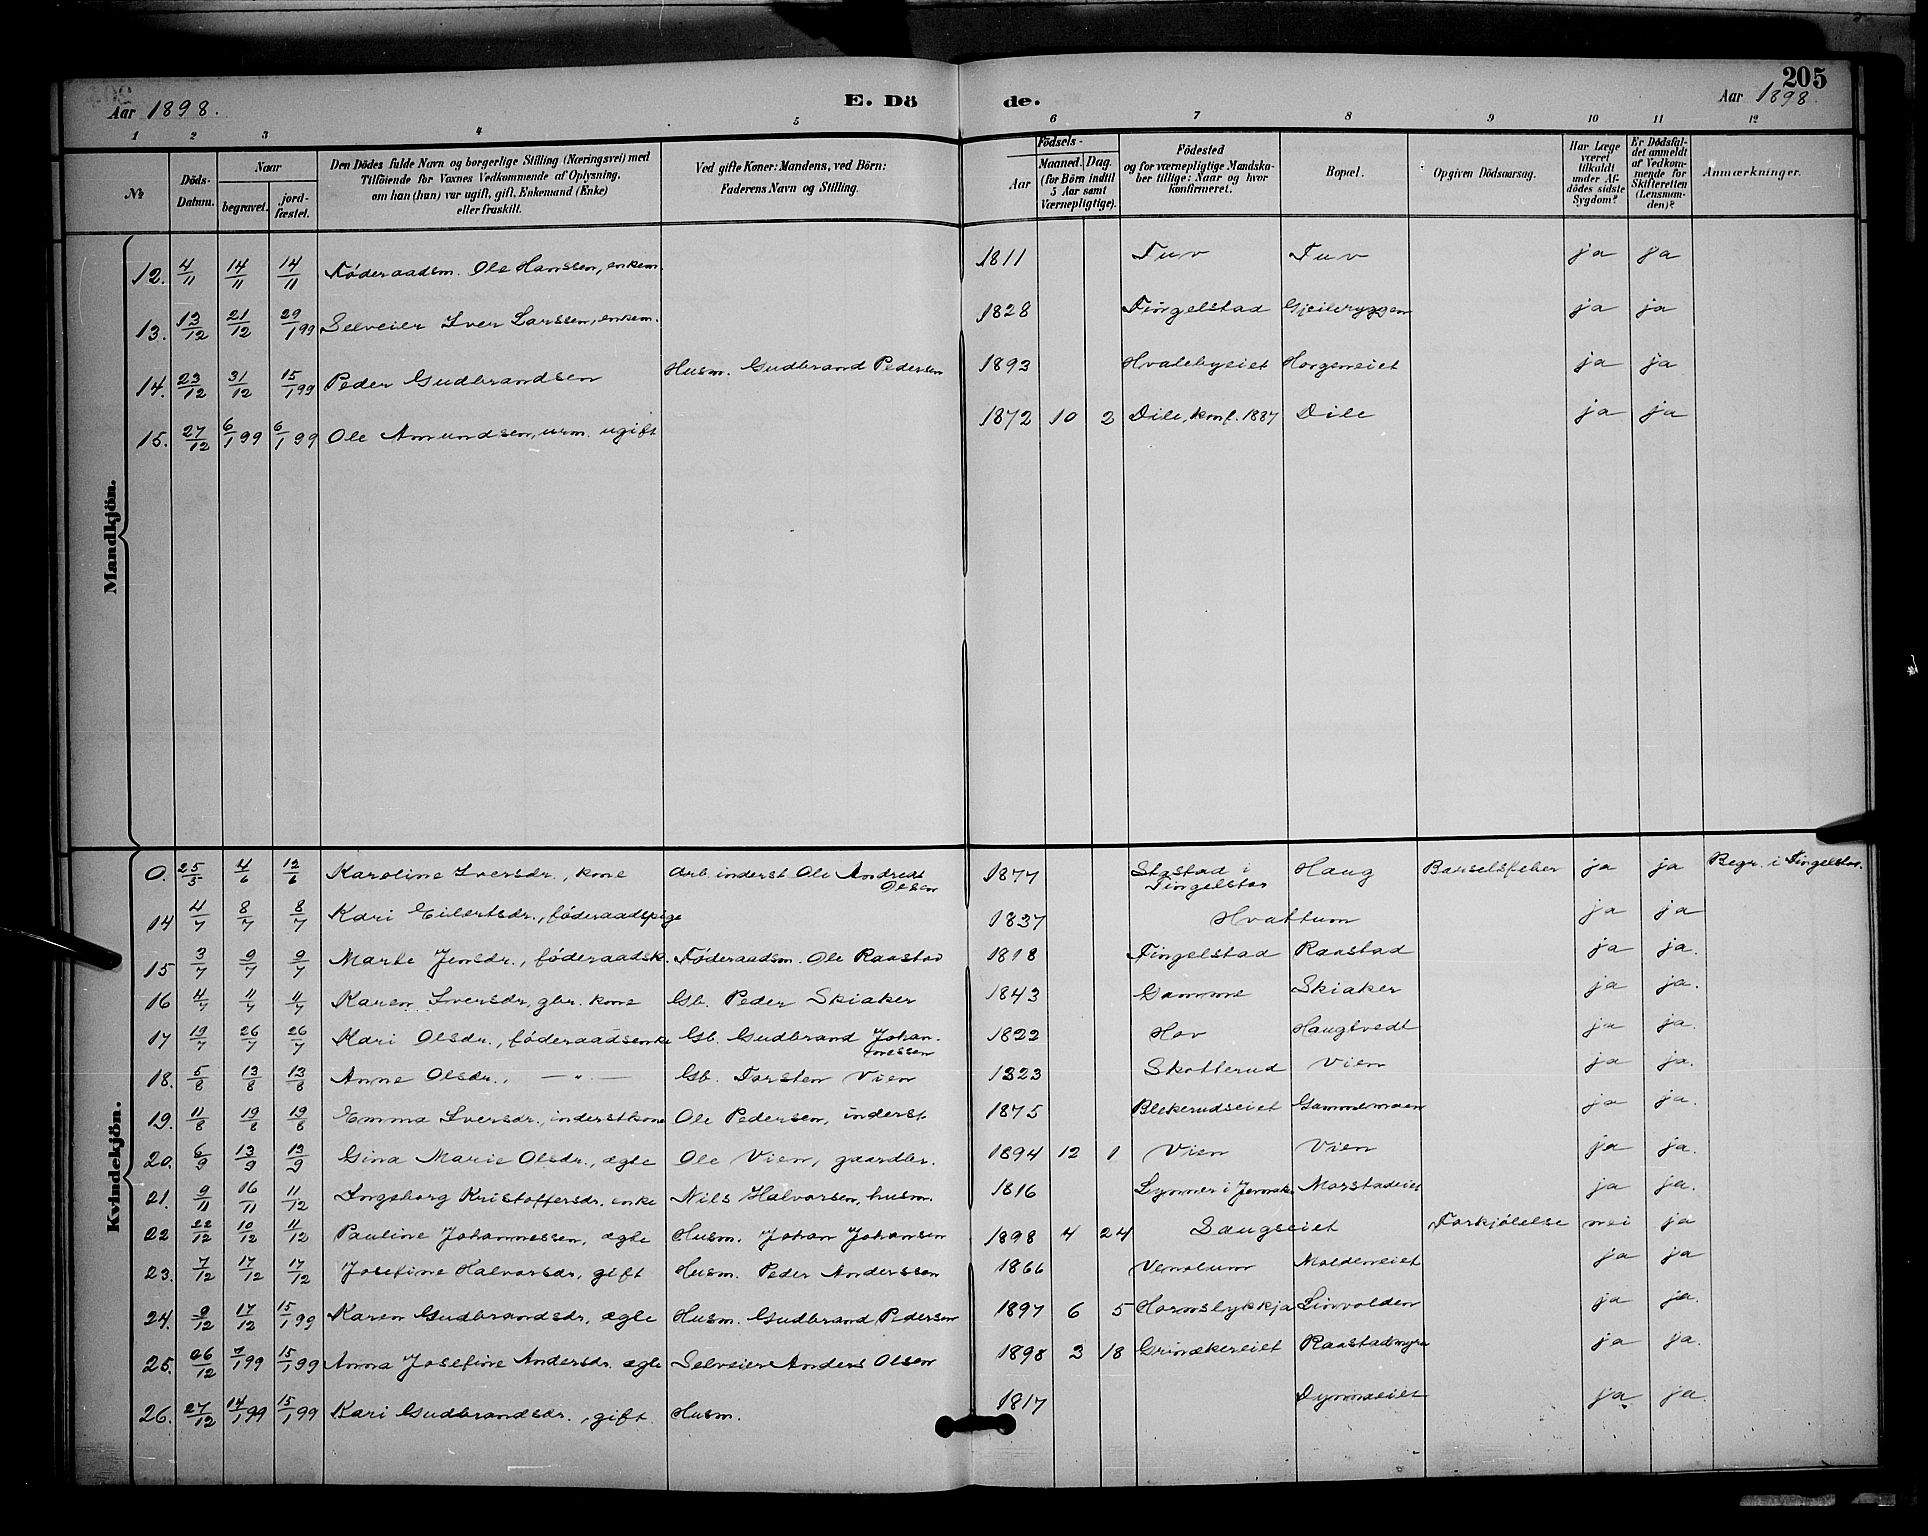 205
Aar 1898.
E. Dö de.
Aar 1898.
1 2 3 4 5 6 7 8 9 10 11 12
No
Döds-Datum.
Naar begravet. jordfæstet.
Den Dödes fulde Navn og borgerlige Stilling (Næringsvei) med
Tilföiende for Voxnes Vedkommende af Oplysning,
om han (hun) var ugift, gift, Enkemand (Enke)
eller fraskilt.
Ved gifte Koner: Mandens, ved Börn:
Faderens Navn og Stilling.
Födsels-
Aar
Maaned. Dag.
(for Börn indtil
5 Aar samt
Værnepligtige).
Födested
og for værnepligtige Mandska-
ber tillige: Naar og hvor
konfirmeret.
Bopæl.
Opgiven Dödsaarsag.
Har Læge
været
tilkaldt
under Af-
dödes sidste
Sygdom?
Er Dödsfal-
det anmeldt
af Vedkom-
mende for
Skifteretten
(Lensman-
den)?
Anmærkninger.
Mandkjön.
12. 4/11 14/11 14/11 Föderaadsm. Ole Hanssen, enkem. 1811 Tuv Tuv ja ja
13. 13/12 21/12 29/1 99 Selveier Iver Larssen, enkem. 1828 Tingelstad Gjeileryggen ja ja
14. 23/12 31/12 15/1 99 Peder Gudbrandsen Husm. Gudbrand Pedersen 1893 Hvalebyeiet Horgeneiet ja ja
15. 27/12 6/1 99 6/1 99 Ole Amundsen, urm. ugift 1872 10 2 Dile, konf. 1887 Dile ja ja
Kvindekjön.
0. 25/5 4/6 12/6 Karoline Iversdr., kone Arb. inderst Ole Andreas Olsen 1877 Stastad i Tingelstad Haug Barselsfeber ja ja Begr. i Tingelstad.
14 4/7 8/7 8/7 Kari Eilertsdr., föderaadspige 1837 Hvattum ja ja
15 3/7 9/7 9/7 Marte Jensdr., föderaadsk. Föderaadsm. Ole Raastad 1818 Tingelstad Raastad ja ja.
16 4/7 11/7 11/7 Karen Iversdr, gbr. kone Gb. Peder Skiaker 1843 Gamme Skiaker ja ja.
17 19/7 26/7 26/7 Kari Olsdr., föderaadsenke Gb. Gudbrand Johannessen 1822 Hov Haugtvedt ja ja.
18. 5/8 13/8 13/8 Anne Olsdr., — " — Gb. Torsten Vien 1823 Skotterud Vien ja ja.
19. 11/8 19/8 19/8 Emma Iversdr., inderstkone Ole Pedersen, inderst 1875 Blekerudseiet Gammemoen ja ja.
20. 6/9 13/9 13/9 Gina Marie Olsdr., ægte Ole Vien, gaardbr. 1894 12 1 Vien Vien ja ja.
21. 9/11 16/11 11/12 Ingeborg Kristoffersdr, enke Nils Halvorsen, husm. 1816 Lynner i Jevnaker Morstadeiet ja ja.
22 22/12 10/12 11/12 Pauline Johannessen, ægte Husm. Johan Johansen 1898 4 24 Saugseiet Forkjölelse nei ja
23. 7/12 17/12 17/12 Josefine Halvorsdr, gift Husm. Peder Anderssen 1866 Venolum Moldeneiet ja ja
24. 9/12 17/12 15/1 99 Karen Gudbrandsdr, ægte Husm. Gudbrand Pedersen 1897 6 5 Hornslykkja Linvolden ja ja.
25. 26/12 7/1 99 15/1 99 Anna Josefine Andersdr. ægte Selveier Anders Olsen 1898 3 18 Grinakereiet Raastadmyra ja ja.
26. 27/12 14/1 99 15/1 99 Kari Gudbrandsdr., gift Husm. 1817 Dynnaeiet ja ja